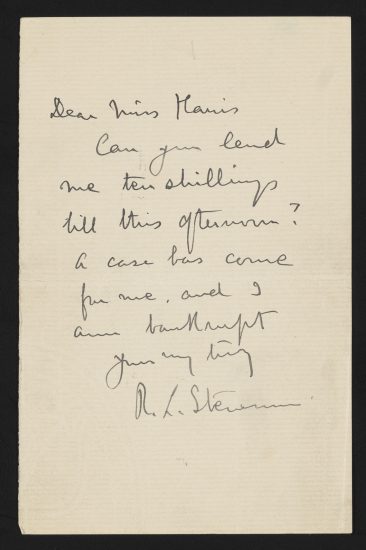 Dear Miss Harris
Can you lend
me ten shillings
till this afternoon?
A case has come
for me, and I
am bankrupt
yours very truly
R. L. Stevenson